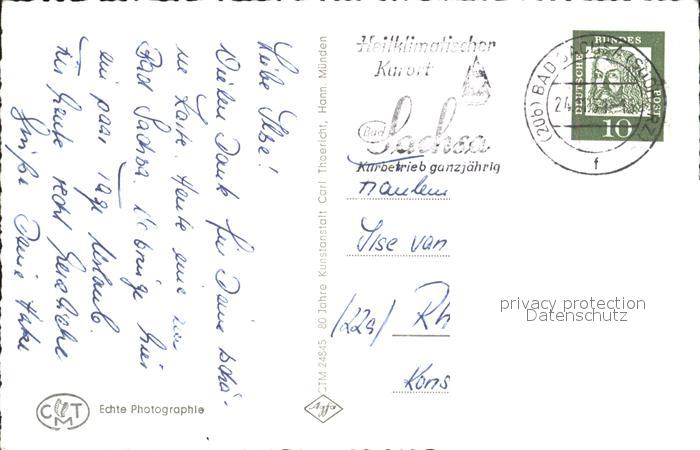 Liebe Ilse!
Vielen Dank für Deine schö-
ne Karte. Heute eine von
Bad Sachsa. Ich bringe hier
ein paar Tage Urlaub.
Für heute recht herzliche
Grüße Deine
CTM
Echte Photographie
CTM 24845 80 Jahre Kunstanstalt Carl Thoericht, Hann. Münden
Agfa
Heilklimatischer
Kurort
Bad Sachsa
Kurbetrieb ganzjährig
(20b) BAD SACHSA (SÜDHARZ)
24.
f
DEUTSCHE BUNDESPOST
10
Fräulein
Ilse van
(22a) Rh
Kons
privacy protection
Datenschutz